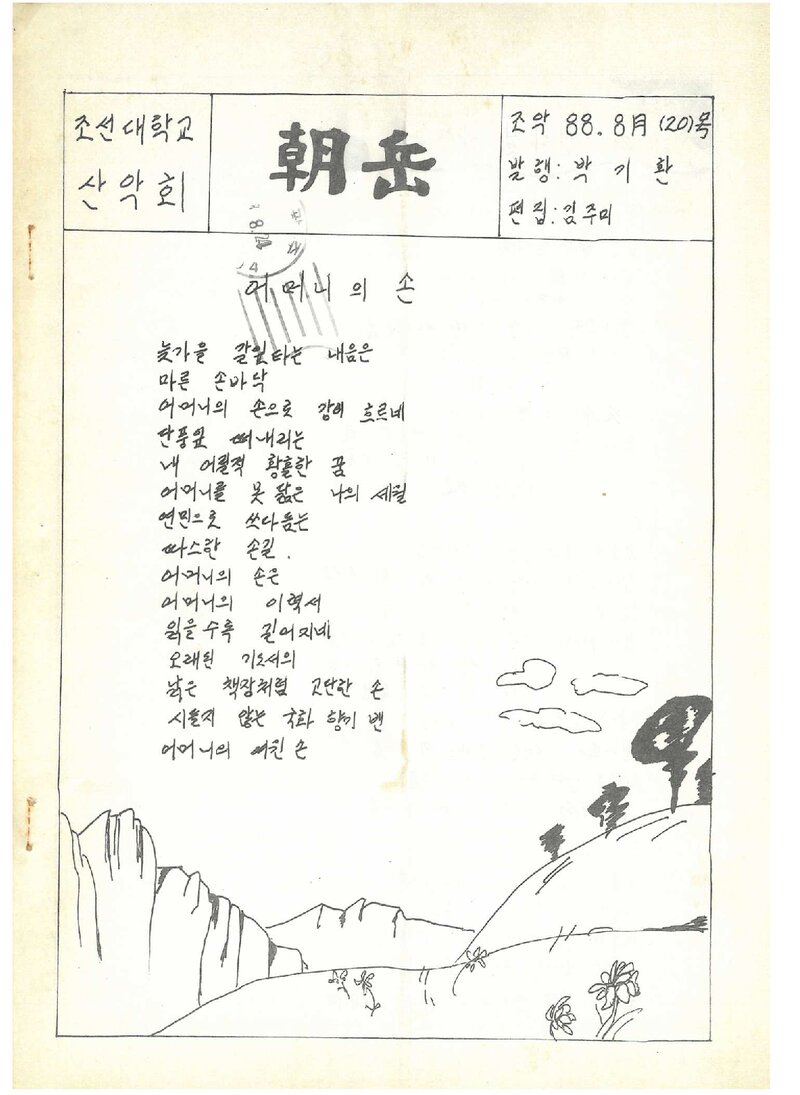 조선대학교
산악회
朝岳
조악 88. 8月 (20)号
발행: 박 기 환
편집: 김주미
8.24
4
어머니의 손
늦가을 갈잎타는 내음은
마른 손바닥
어머니의 손으로 강이 흐르네
단풍잎 떠내리는
내 어릴적 황홀한 꿈
어머니를 못 닮은 나의 세월
연민으로 쓰다듬는
따스한 손길.
어머니의 손은
어머니의 이력서
읽을수록 길어지네
오래된 기도서의
낡은 책장처럼 고단한 손
시들지 않는 국화 향기 밴
어머니의 여윈 손